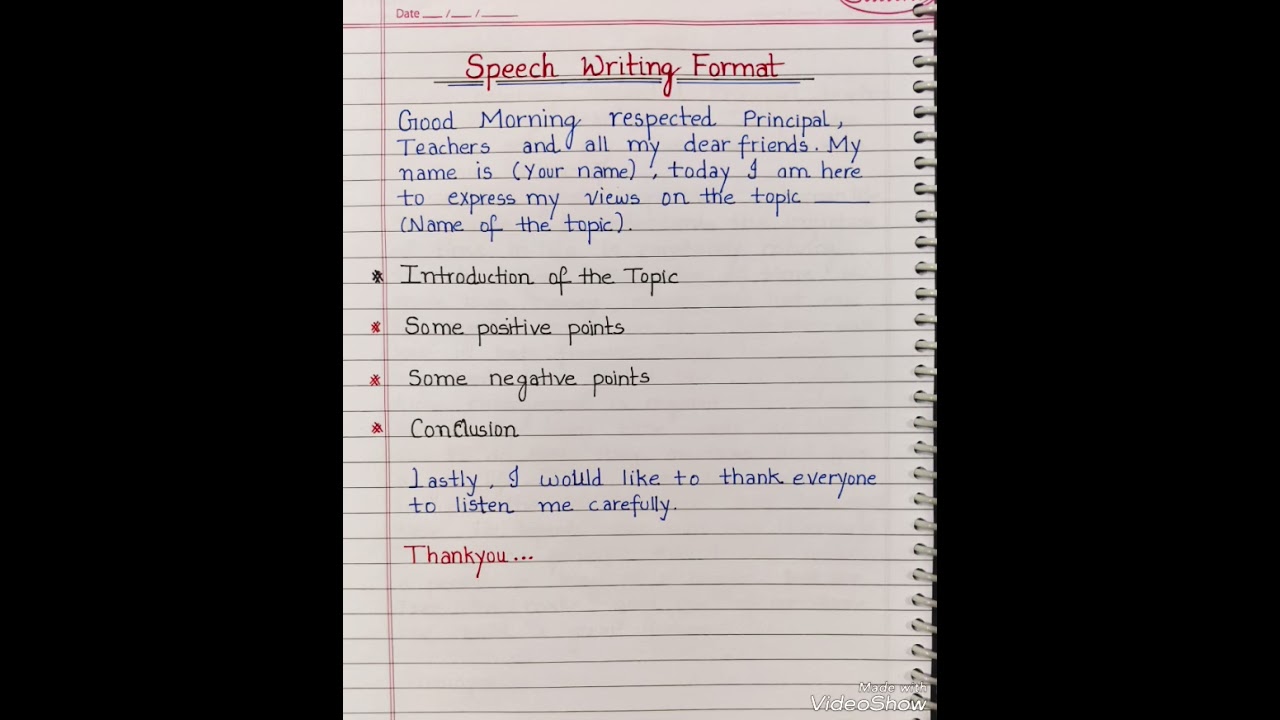 Date __/__/____
Speech Writing Format
Good Morning respected Principal,
Teachers and all my dear friends. My
name is (Your name), today I am here
to express my views on the topic ____
(Name of the topic).
* Introduction of the Topic
* Some positive points
* Some negative points
* Conclusion
Lastly, I would like to thank everyone
to listen me carefully.
Thankyou...
Made with
VideoShow